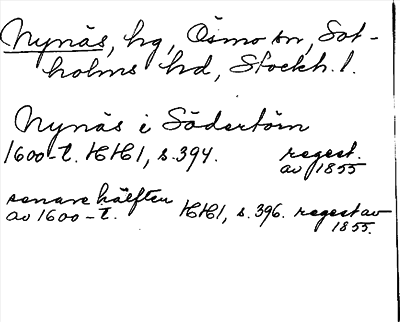 Nynäs, hg, Ösmo sn, Sot-
holms hd, Stockh. l.
Nynäs i Södertörn
1600-t. HH 1, s. 394. regest. av 1855
senare hälften av 1600-t. HH 1, s. 396. regest av 1855.